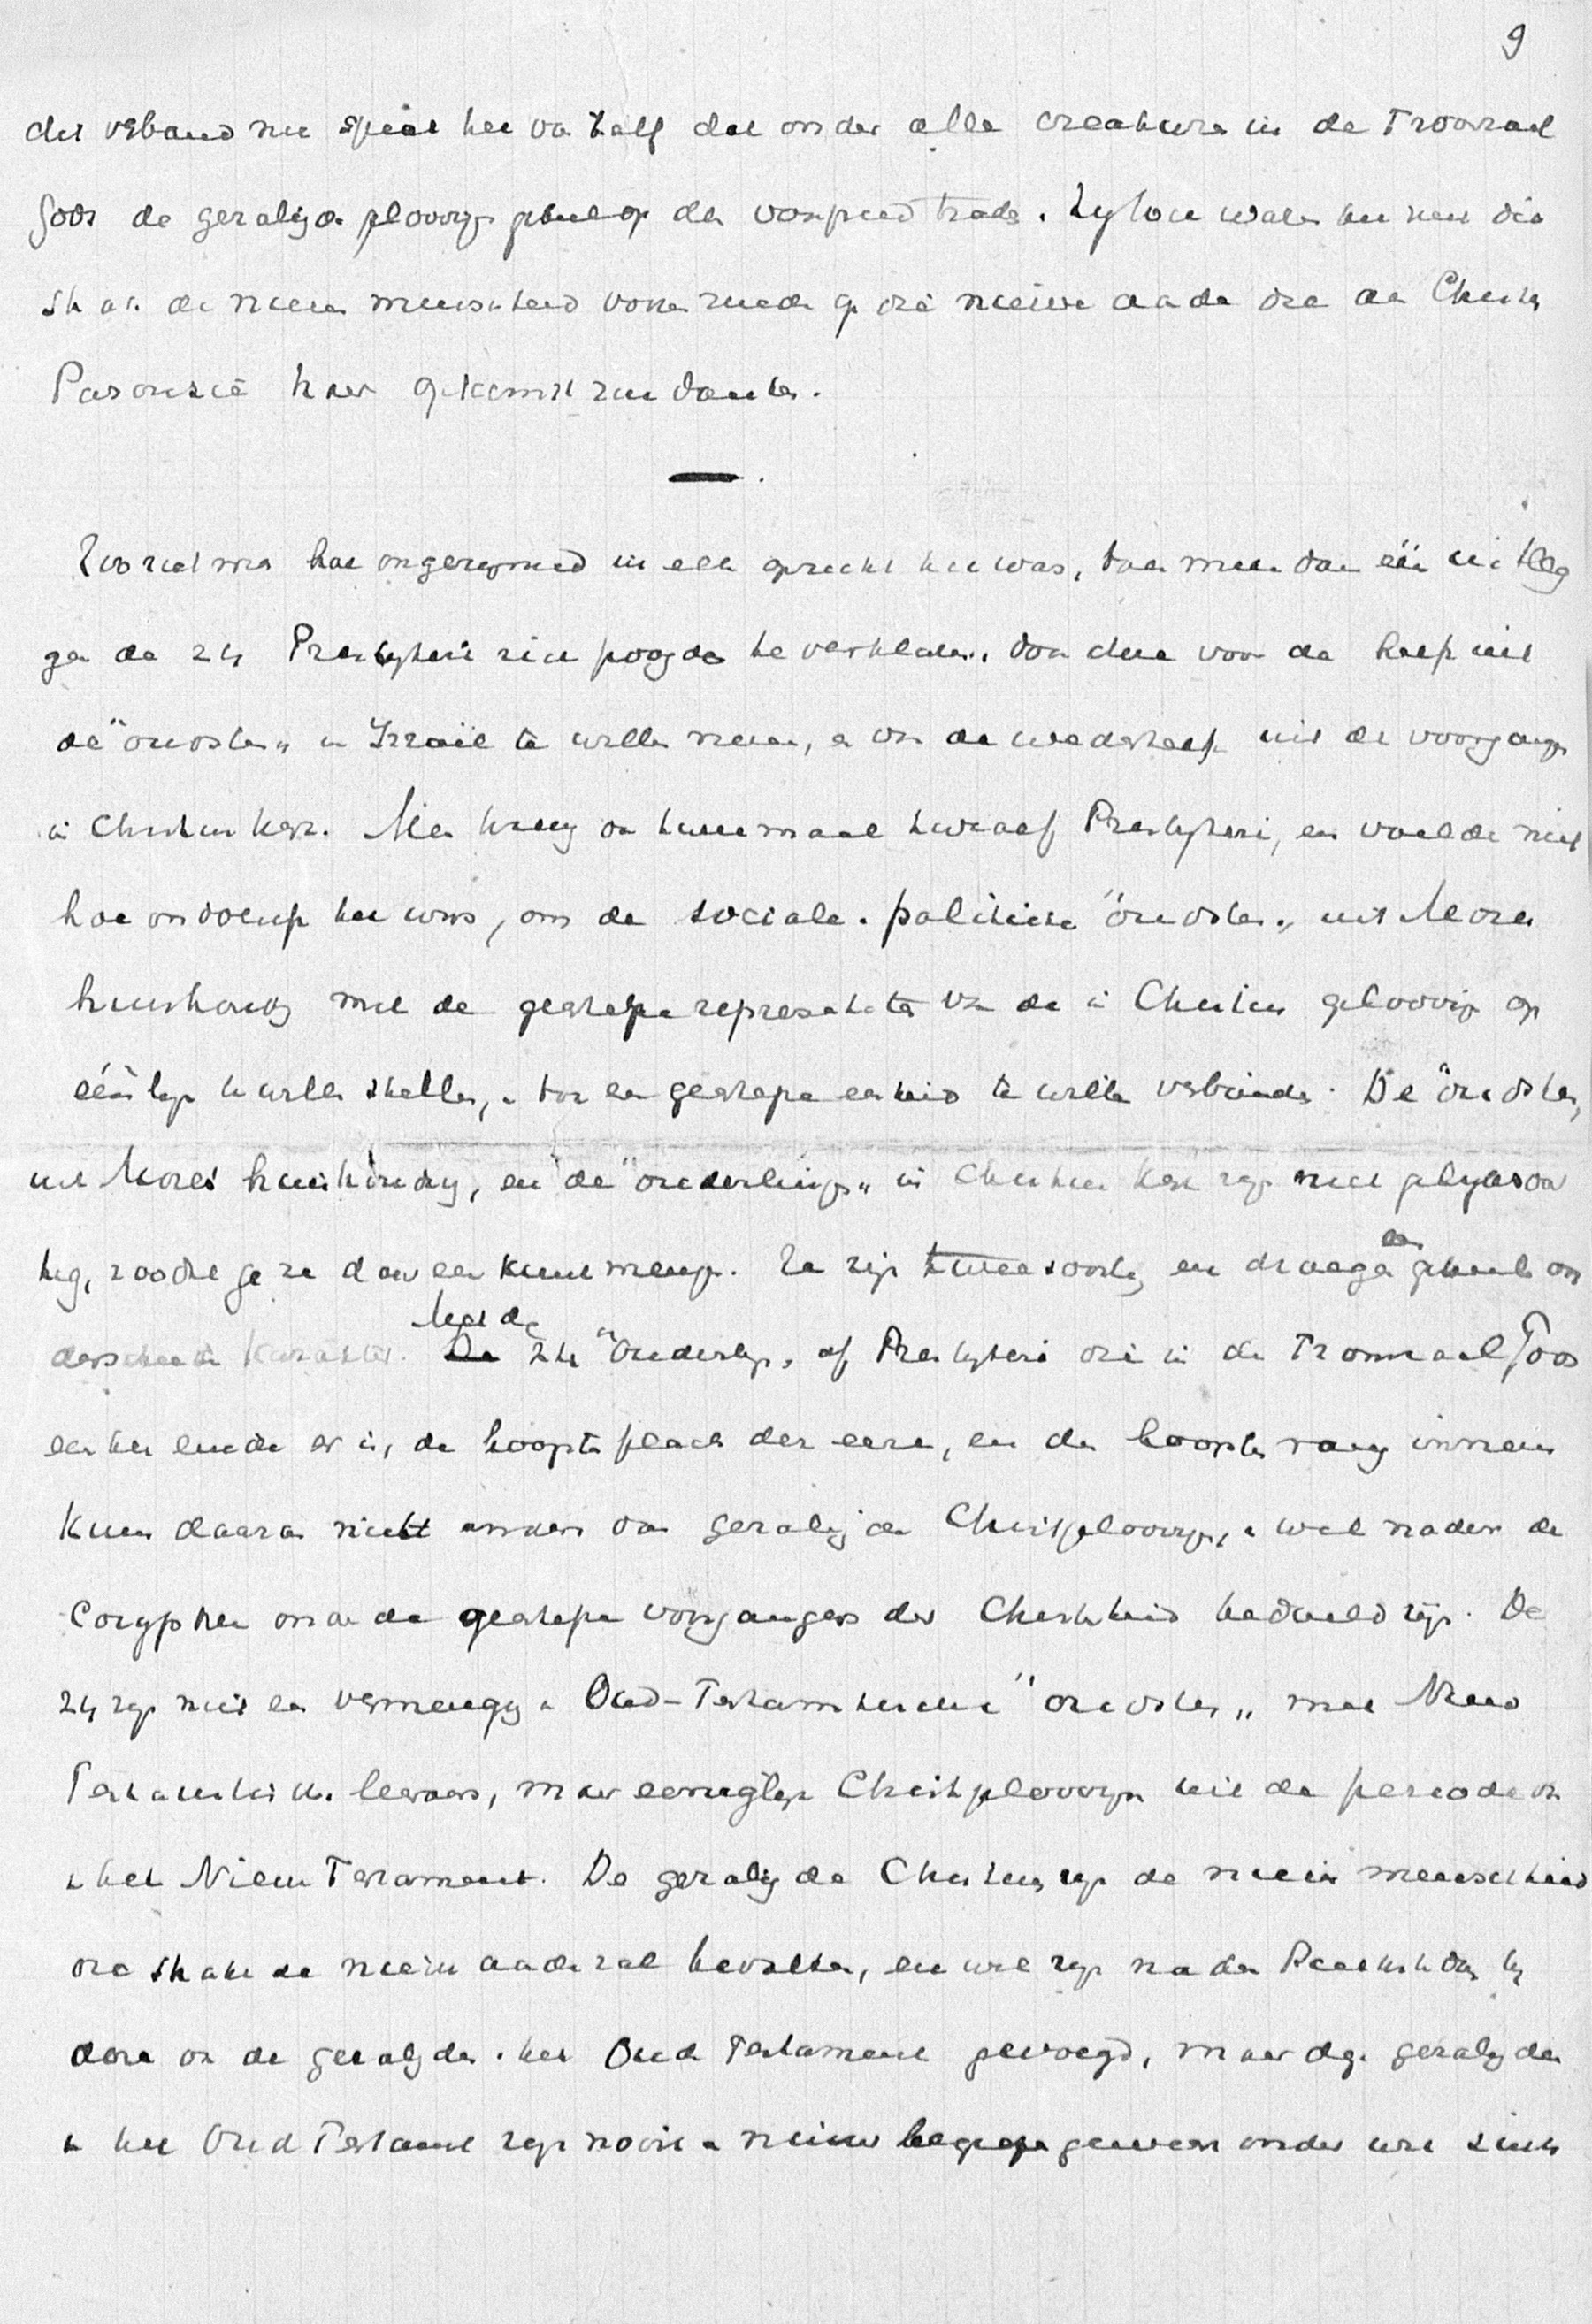 9
dit verband nu spreekt het van zelf dat onder alle creaturen in de Troonzaal
Gods de gezaligde geloovigen geheel op den voorgrond traden. Zy toch waren het niet die
straks de nieuwe menschheid vormen zouden op die nieuwe aarde die aan Christus
Parousie haar opkomst zou danken.
—.
Zoo ziet men hoe ongerymd in elk opzicht het was, toen men dan één uitleg
gen de 24 Presbyteri zich poogde te verklaren, door deze voor de helft uit
de "oudsten" in Israël te willen nemen, en voor de wederhelft uit de voorgangers
in Christus kerk. Men kreeg dan tweemaal twaalf Presbyteri, en voelde niet
hoe ondoenlyk het was, om de sociale-politieke "oudsten" uit Mozes
huishouding met de geestelyke representanten van de in Christus geloovigen op
één lyn te willen stellen, en tot een geestelyke eenheid te willen verbinden. De "oudsten"
uit Mozes huishouding, en de "ouderlingen" in Christus kerk zyn niet gelyksoor
tig, zoodat ge ze door een kunt mengen. Ze zyn tweesoortig en dragen een geheel on
derscheiden karakter. De Met de 24 "Ouderlingen" of Presbyteri die in de Troonzaal Gods
de hoogste plaats der eere, en den hoogsten rang innemen
kunnen daarom niet anders dan gezaligde Christgeloovigen, en wel nader de
Corypheeën onder de geestelyke voorgangers der Christenheid bedoeld zyn. De
24 zyn niet een vermenging van Oud-Testamentische "oudsten" met Nieuw
Testamentische leeraars, maar eeniglyk Christgeloovigen uit de periode van
het Nieuw Testament. De gezaligde Christenen zyn de nieuwe menschheid
die straks de nieuwe aarde zal bevolken, en wel zyn na den Pinksterdag by
deze ook de gezaligden uit het Oude Testament gevoegd, maar deze gezaligden
uit het Oud Testament zyn nooit in nieuw begrepen geweest onder wie sinds